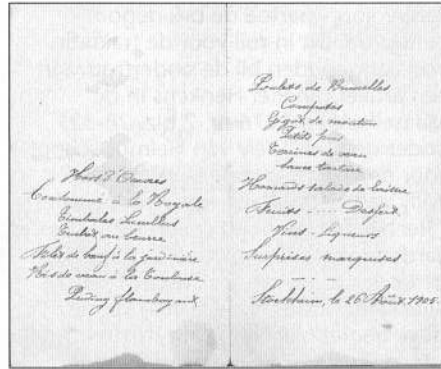 Hors d'Oeuvres
Consommé à la Royale
Timbales Lucullus
Turbot au beurre
Filet de bœuf à la jardinière
Ris de veau à la Toulouse
Puding flamboyant
Poulets de Bruxelles
Compotes
Gigot de mouton
Petits pois
Terrines de veau
sauce tartare
Homards salade de laitue
Fruits ..... Dessert
Vins - Liqueurs
Surprises marquises
Stockheim, le 26 Août 1905.